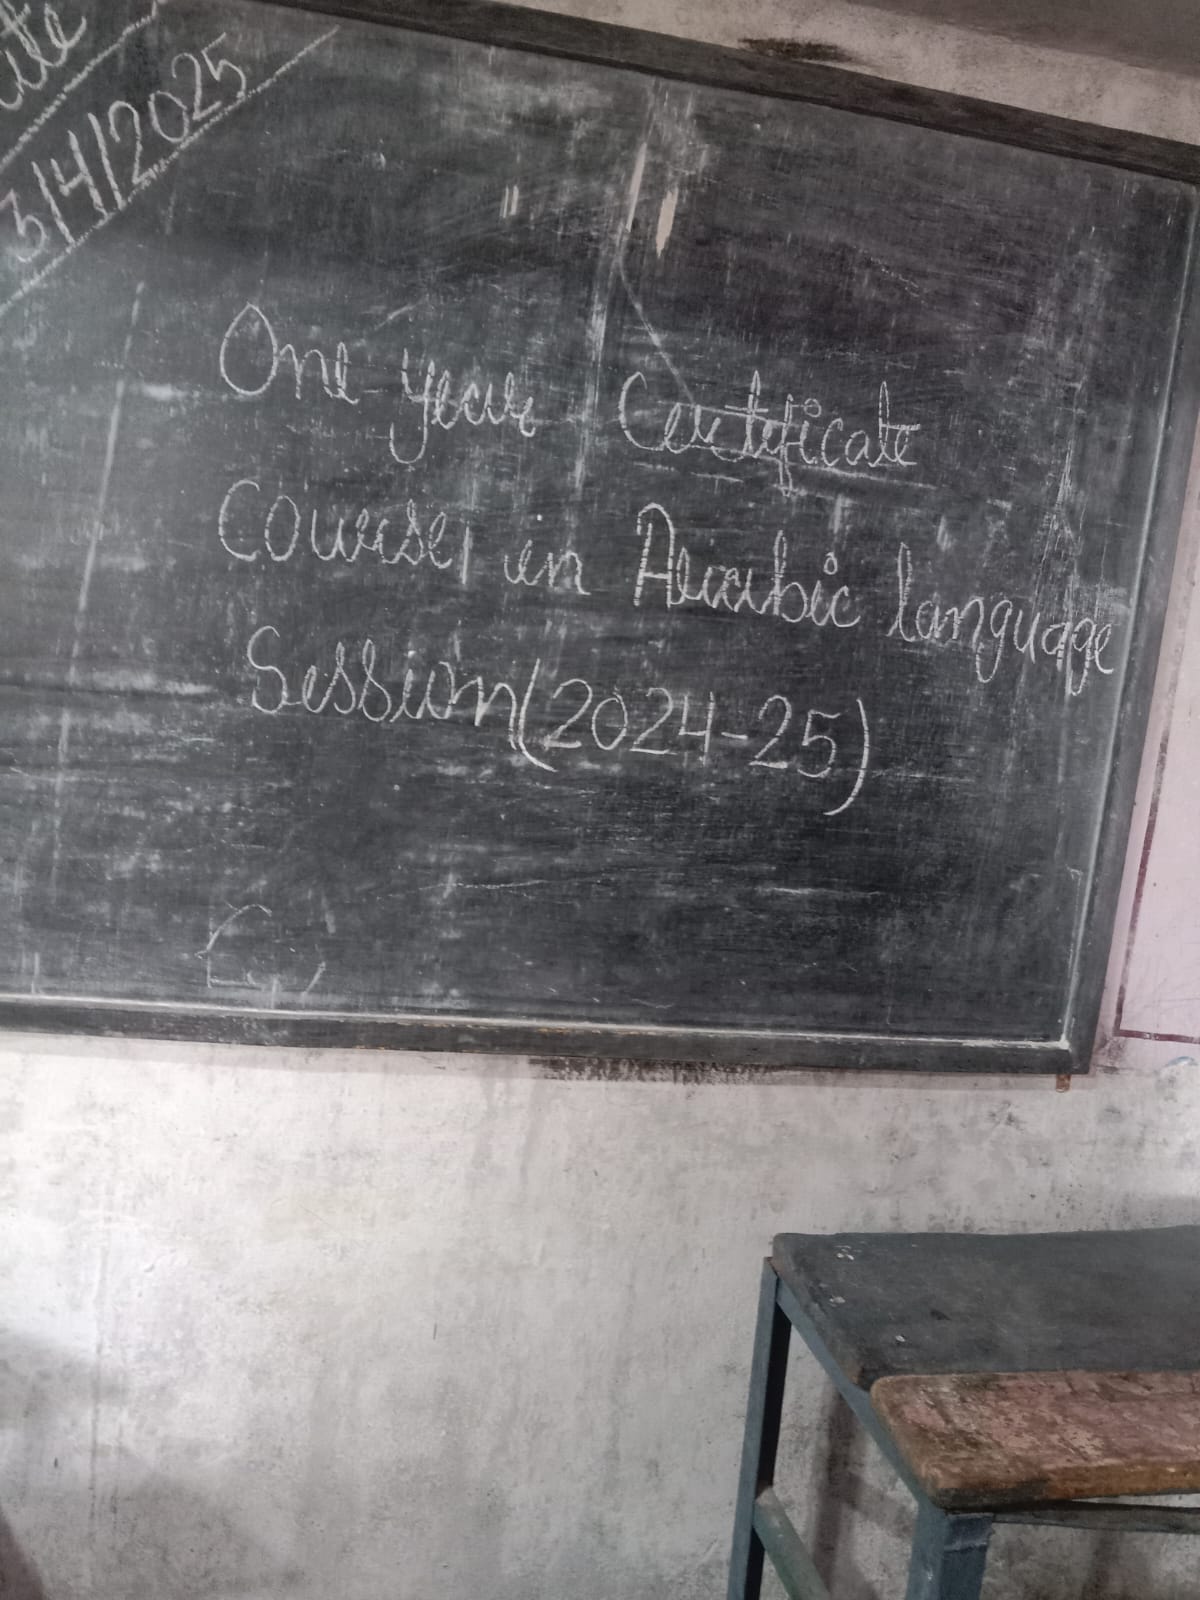 3/4/2025
One year Certificate
course, in Arabic language
Session (2024-25)